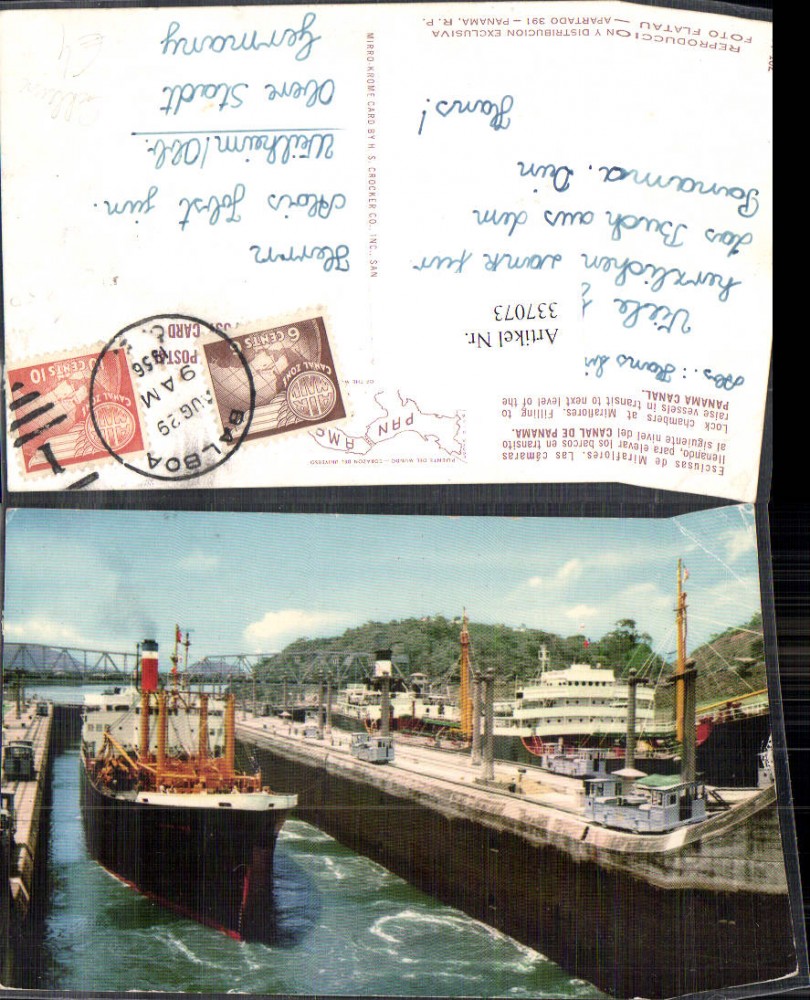 Esclusas de Miraflores. Las cámaras
llenando, para elevar los barcos en transito
al siguiente nivel del CANAL DE PANAMA.
Lock chambers at Miraflores. Filling to
raise vessels in transit to next level of the
PANAMA CANAL.
PUENTE DEL MUNDO — CORAZON DEL UNIVERSO
PAN
AMA
Abs.: Hans
Artikel Nr.
337073
Viele
herzlichen Dank für
das Buch aus dem
Panama. Dein
Hans!
REPRODUCCION Y DISTRIBUCION EXCLUSIVA
FOTO FLATAU — APARTADO 391 — PANAMA, R. P.
MIRRO-KROME CARD BY H. S. CROCKER CO., INC., SAN
POSTAL
POST CARD
6 CENTS 6
CANAL ZONE
AIR MAIL
10 CENTS 10
CANAL ZONE
AIR MAIL
BALBOA
AUG 29
9 AM
1956
C. Z.
1
Herrn
Alois Jobst jun.
Weilheim/Obb.
Obere Stadt
Germany